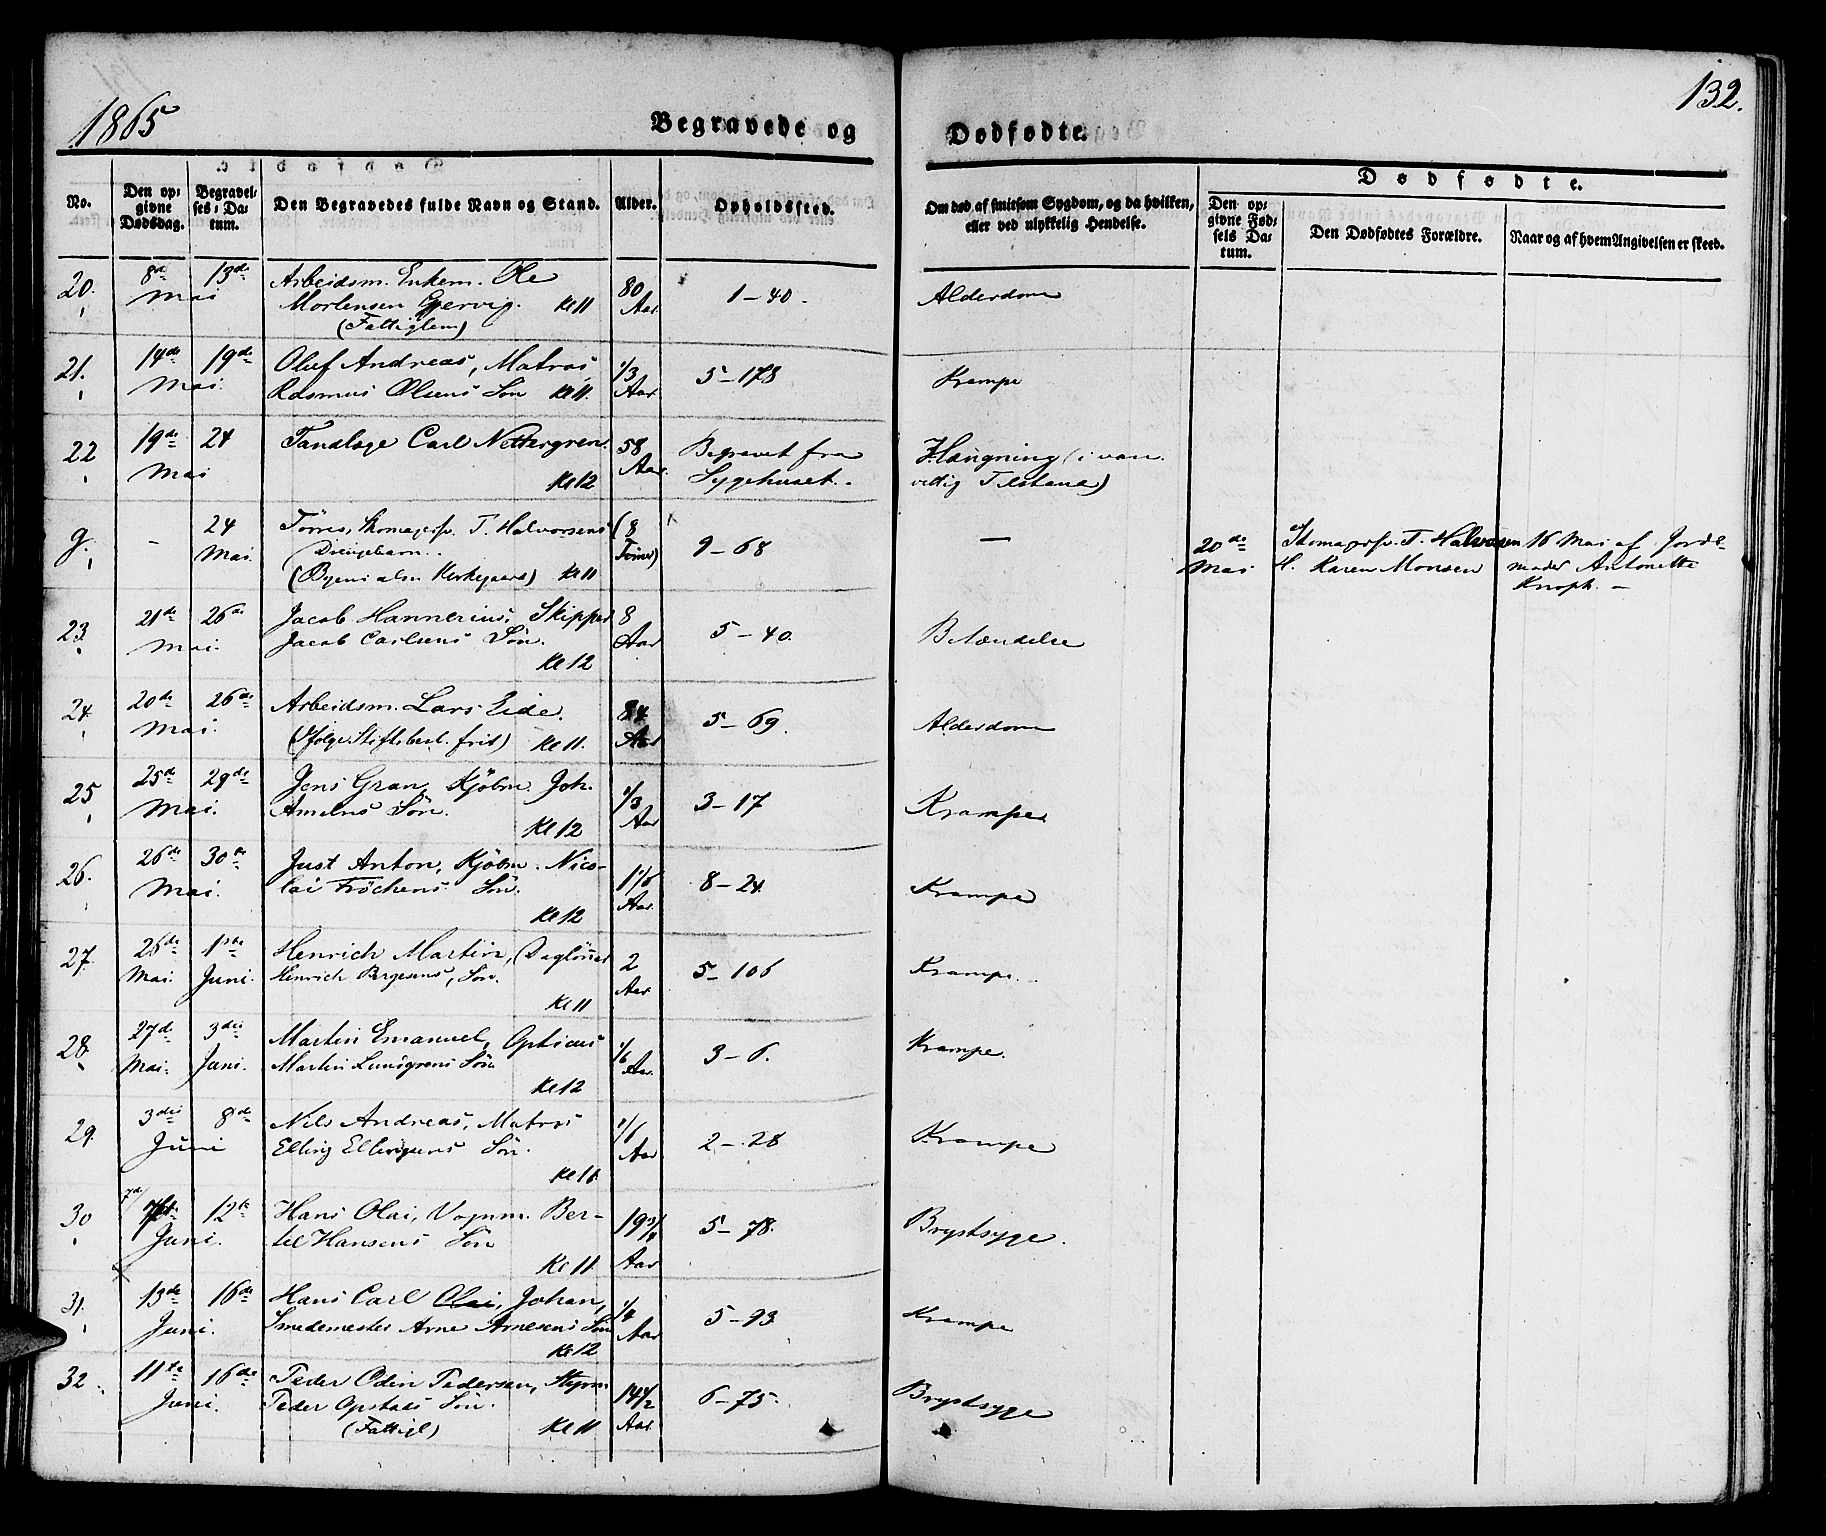 1865
Begravede og
Dødfødte.
132.
No.
Den op-
givne
Dødsdag.
Begravel-
ses-Da-
tum.
Den Begravedes fulde Navn og Stand.
Alder.
Opholdssted.
Om død af smitsom Sygdom, og da hvilken,
eller ved ulykkelig Hendelse.
Dødfødte.
Den op-
givne Fød-
sels Da-
tum.
Den Dødfødtes Forældre.
Naar og af hvem Angivelsen er skeed.
20. 8de 13de Arbeidsm. Enkem. Ole 80 1-40. Alderdom
Mai Mortensen Gjervig. Kl 11 Aar
(Fattiglem)
21. 14de 19de Oluf Andreas, Matros 1/3 5-178 Krampe
Mai. Rasmus Olsens Søn Kl 11. Aar
22 19de 24 Tandlæge Carl Nettergren 58 Begravet fra Hængning (i van
Mai Kl 12 Aar. Sygehuset. vittig Tilstand)
g. - 24 Tørres, Skomagersv. T. Halvorsens (8 9-68 — 20de Skomagersv. T. Halvorsen 16 Mai af Jorde-
Mai. Drengebarn. Timer) Mai H. Karen Monsen moder Antonette
(Byens alm. Kirkegaard) Kl 11 Knoph. -
23. 21de 26de Jacob Hannerius, Skipper 8 5-40. Betændelse
Mai. Jacob Carlsens Søn. Aar
Kl 12
24. 20de 26de Arbeidsm. Lars Eide. 84 5-69. Alderdom
Mai. (ifølge Stiftsbesl. frit) Kl 11. Aar
25 25de 29de Jens Gran, Kjøbm. Joh. 1/3 3-17 Krampe
Mai. Amelns Søn. Aar
Kl 12
26. 26de 30te Just Anton, Kjøbm. Nico- 1 1/6 8-24. Krampe
Mai. lai Frøchens Søn. Aar.
Kl 12
27. 26de 1ste Henrich Martin, (Dagløner 2 5-106 Krampe.
Mai. Juni. Henrich Bergesens, Søn. Aar
Kl 11
28. 27de 3die Martin Emanuel, Opticus 1/6 3-6. Krampe.
Mai. Juni. Martin Lundgrens Søn Aar.
Kl 12
29. 3die 8de Nils Andreas, Matros 1/6 2-28 Krampe
Juni Elling Ellingsens Søn. Aar
Kl 11
30 7de 12te Hans Olai, Vognm. Ber- 19 5-78. Brystsyge.
Juni. tel Hansens Søn Aar
Kl 11.
31. 13de 16de Hans Carl Olai, Johan, 1/4 5-93. Krampe
Juni. Smedemester Arne Arnesens Søn Aar
Kl 12
32. 11te 16de Peder Odin Pedersen, Styrm 14 1/2 6-75. Brystsyge
Juni. Peder Opstads Søn. Aar
(Fattigl) Kl 11